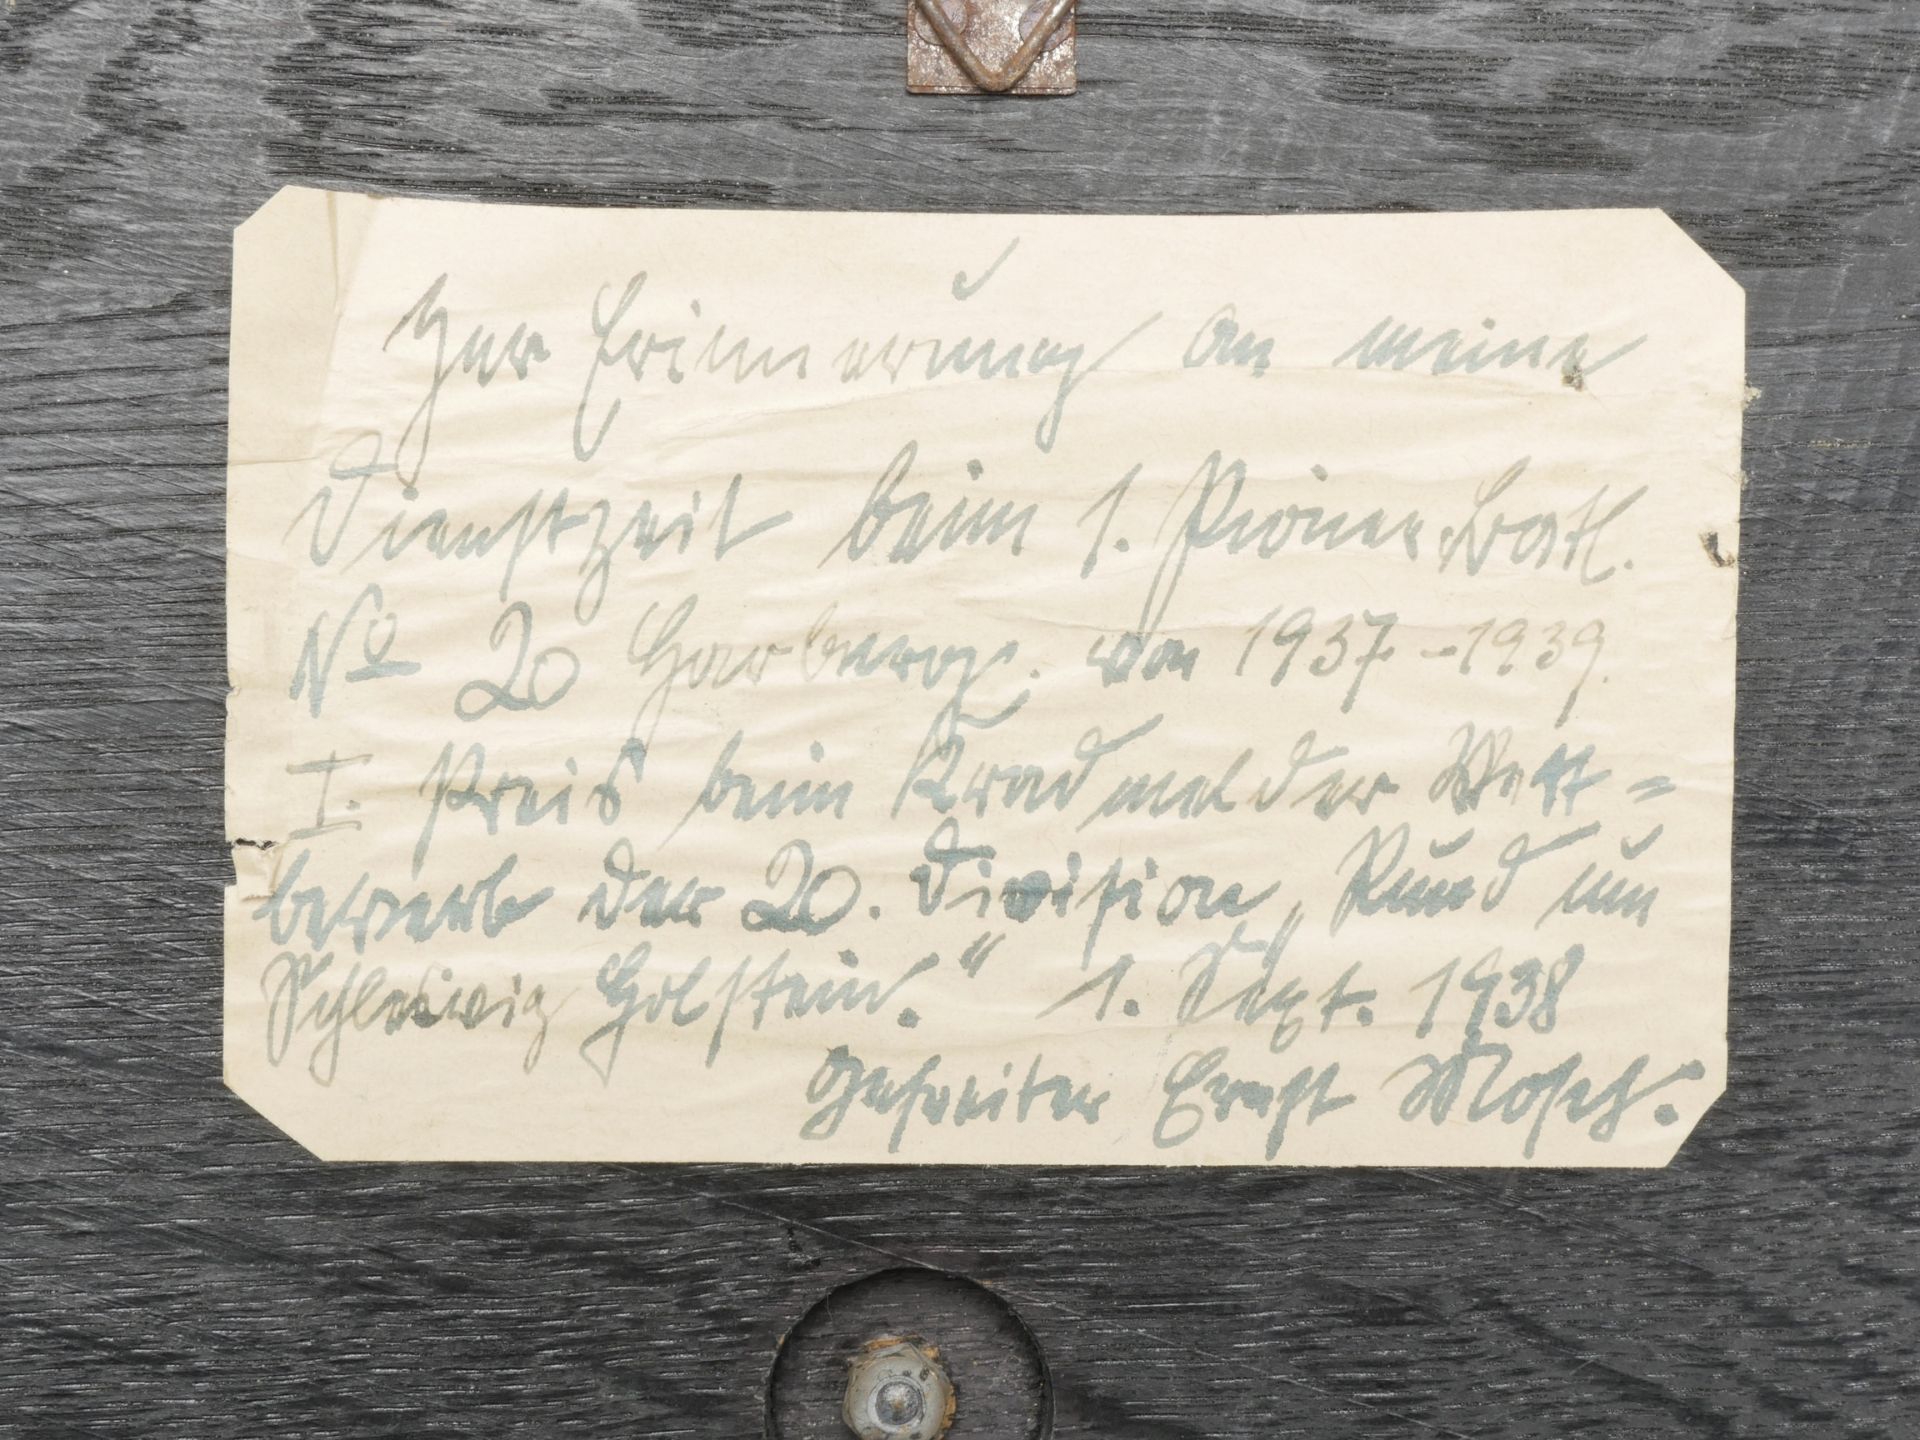 Zur Erinnerung an meine
Dienstzeit beim 1. Pionier Batl.
No 20 Harburg. von 1937-1939.
I. Preis beim Kradmelder Wett=
bewerb der 20. Division „Rund um
Schleswig Holstein.“ 1. Sept. 1938
Gefreiter Ernst Mosch.